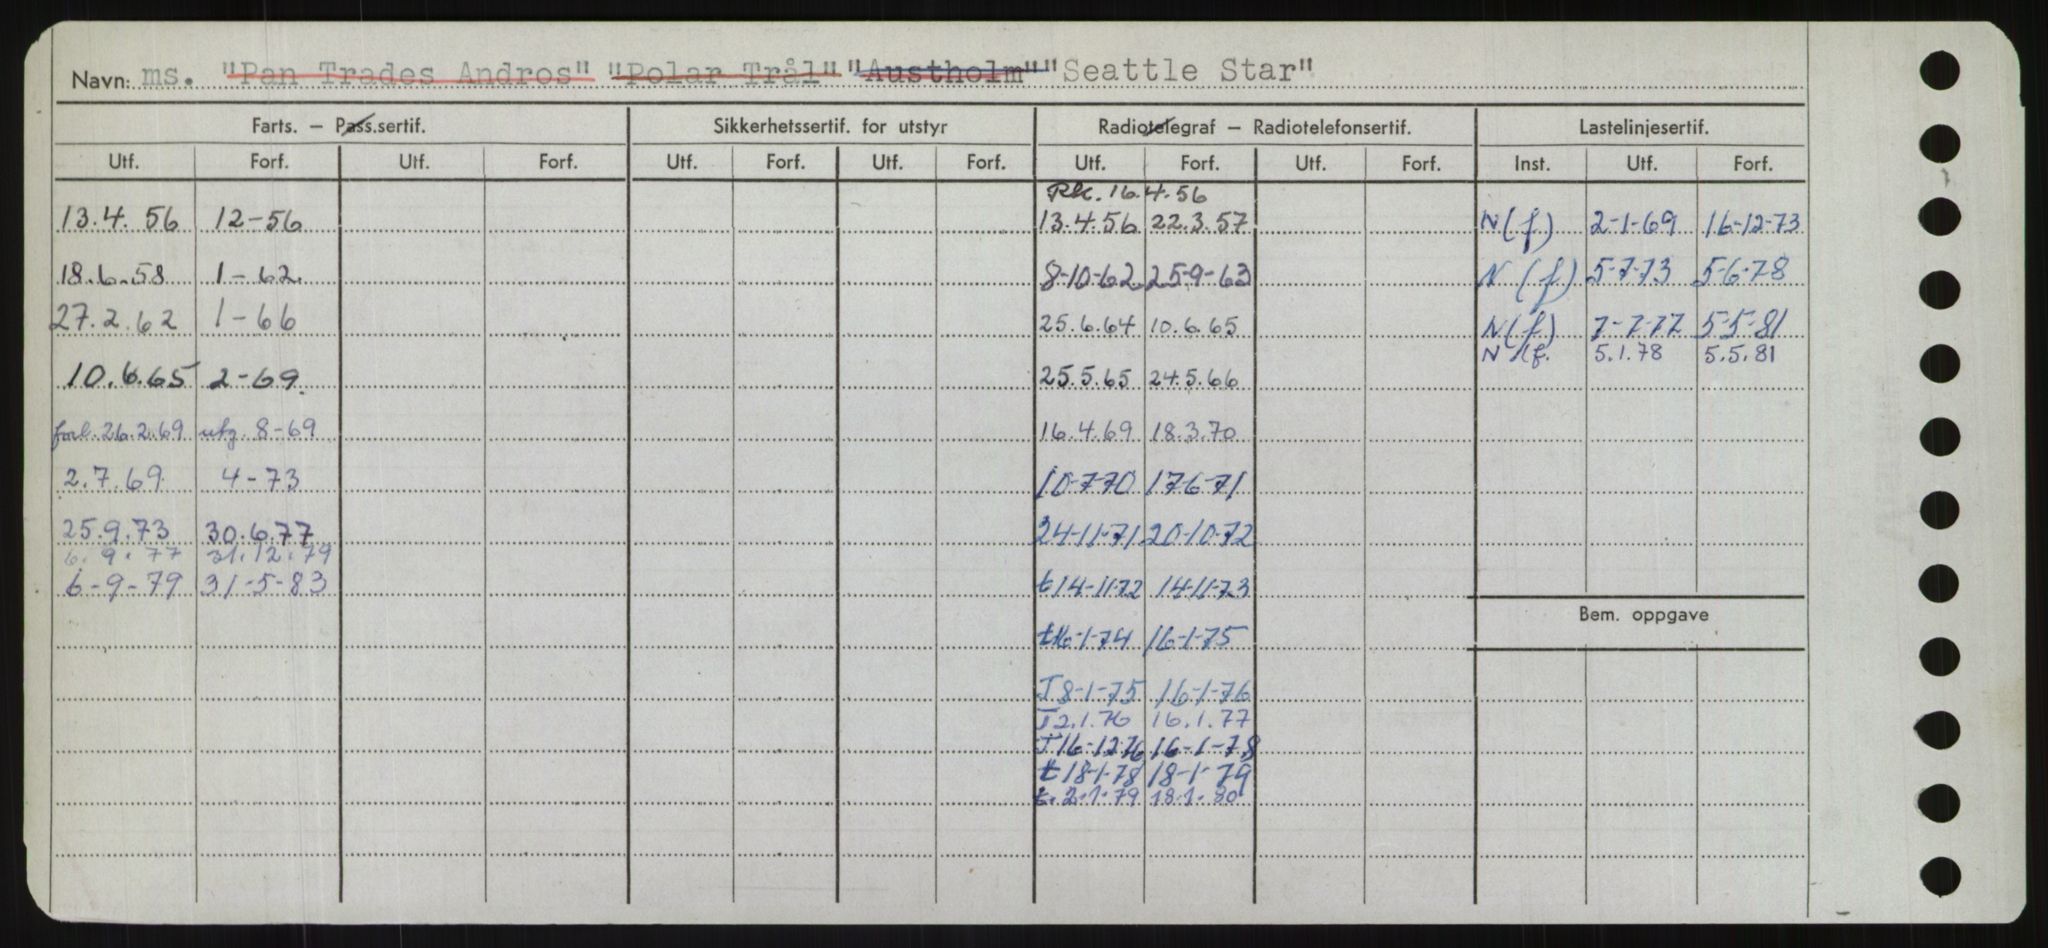 Navn: ms. "Pan Trades Andros" "Polar Trål" "Austholm" "Seattle Star"
Farts. – Pass.sertif. Sikkerhetssertif. for utstyr Radiotelegraf – Radiotelefonsertif. Lastelinjesertif.
Utf. Forf. Utf. Forf. Utf. Forf. Utf. Forf. Utf. Forf. Utf. Forf. Inst. Utf. Forf.
Rk. 16.4.56
13.4.56 12-56 13.4.56 22.3.57 N(f) 2-1-69 16-12-73
18.6.58 1-62 8-10-62 25-9-63 N (f) 5-7-73 5-6-78
27.2.62 1-66 25.6.64 10.6.65 N(f) 7-7-77 5-5-81
N (f. 5.1.78 5.5.81
10.6.65 2-69. 25.5.65 24.5.66
forl. 26.2.69 utg. 8-69 16.4.69 18.3.70
2.7.69 4-73 10-7-70 17-6-71
25.9.73 30.6.77 24-11-71 20-10-72
6.9.77 31.12.79
6-9-79 31-5-83 t 14-11-72 14-11-73
Bem. oppgave
t 16-1-74 16-1-75
T 8-1-75 16-1-76
T 2.1.76 16.1.77
T 16-12-76 16-1-78
t 18-1-78 18-1-79
t. 2.1.79 18.1.80